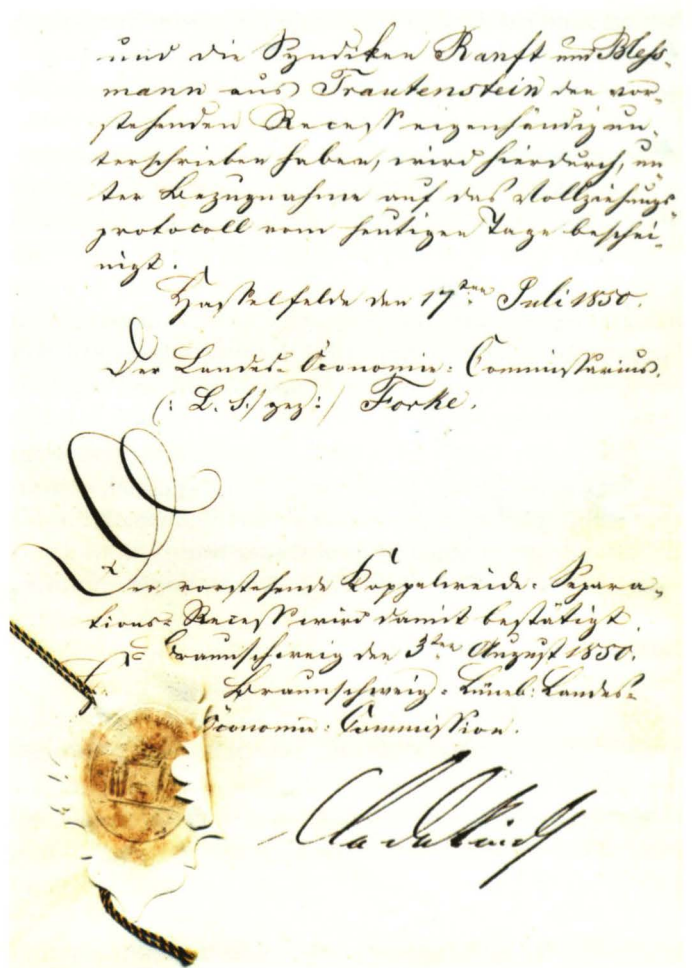 und die Syndiken Ranft und Bless-
mann aus Trautenstein den vor-
stehenden Recess eigenhändig un-
terschrieben haben, wird hierdurch, un-
ter Bezugnahme auf das Vollziehungs-
protocoll vom heutigen Tage beschei-
nigt.
Hasselfelde den 17ten Juli 1850.
Der Landes-Öconomie-Commissarius.
(: L. S./ gez:/ Forke.
Der vorstehende Koppelweide-Separa-
tions-Recess wird damit bestätigt.
Braunschweig den 3ten August 1850.
Braunschweig-Lüneb: Landes-
Öconomie-Commission.